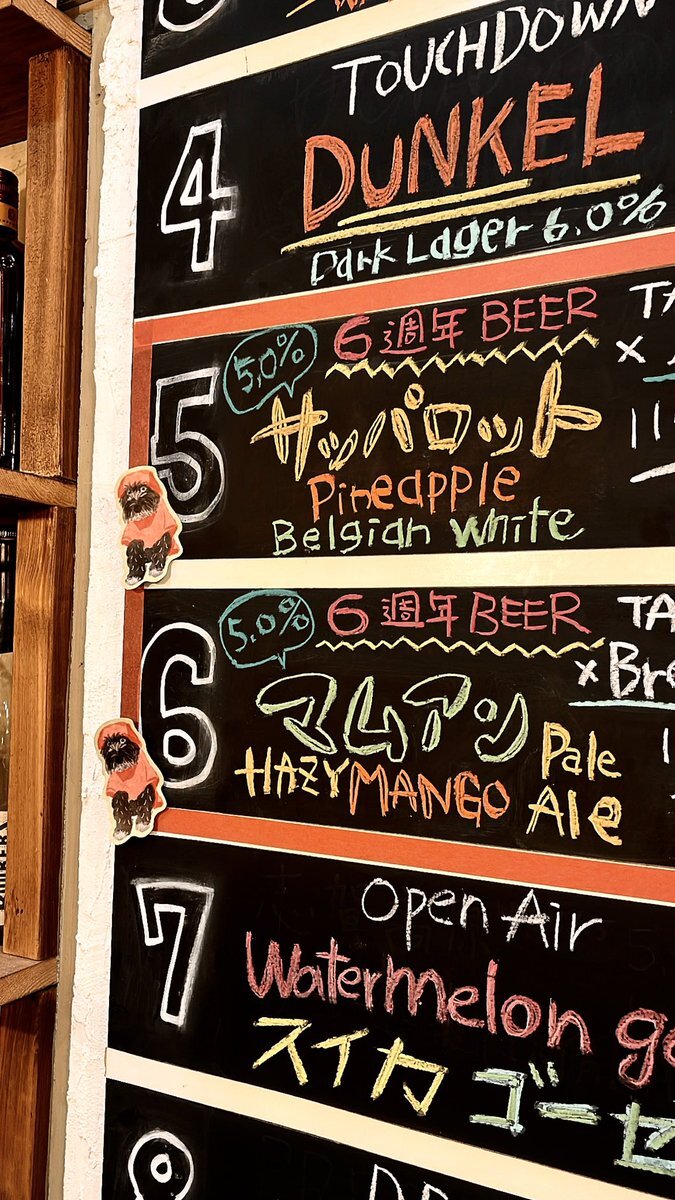 4
TOUCHDOWN
DUNKEL
Dark Lager 6.0%
5
5.0%
6周年 BEER
サッパロット
Pineapple
Belgian white
6
5.0%
6周年 BEER
マムアン
HAZY MANGO Pale Ale
7
Open Air
Watermelon
スイカ ゴーゼ
8